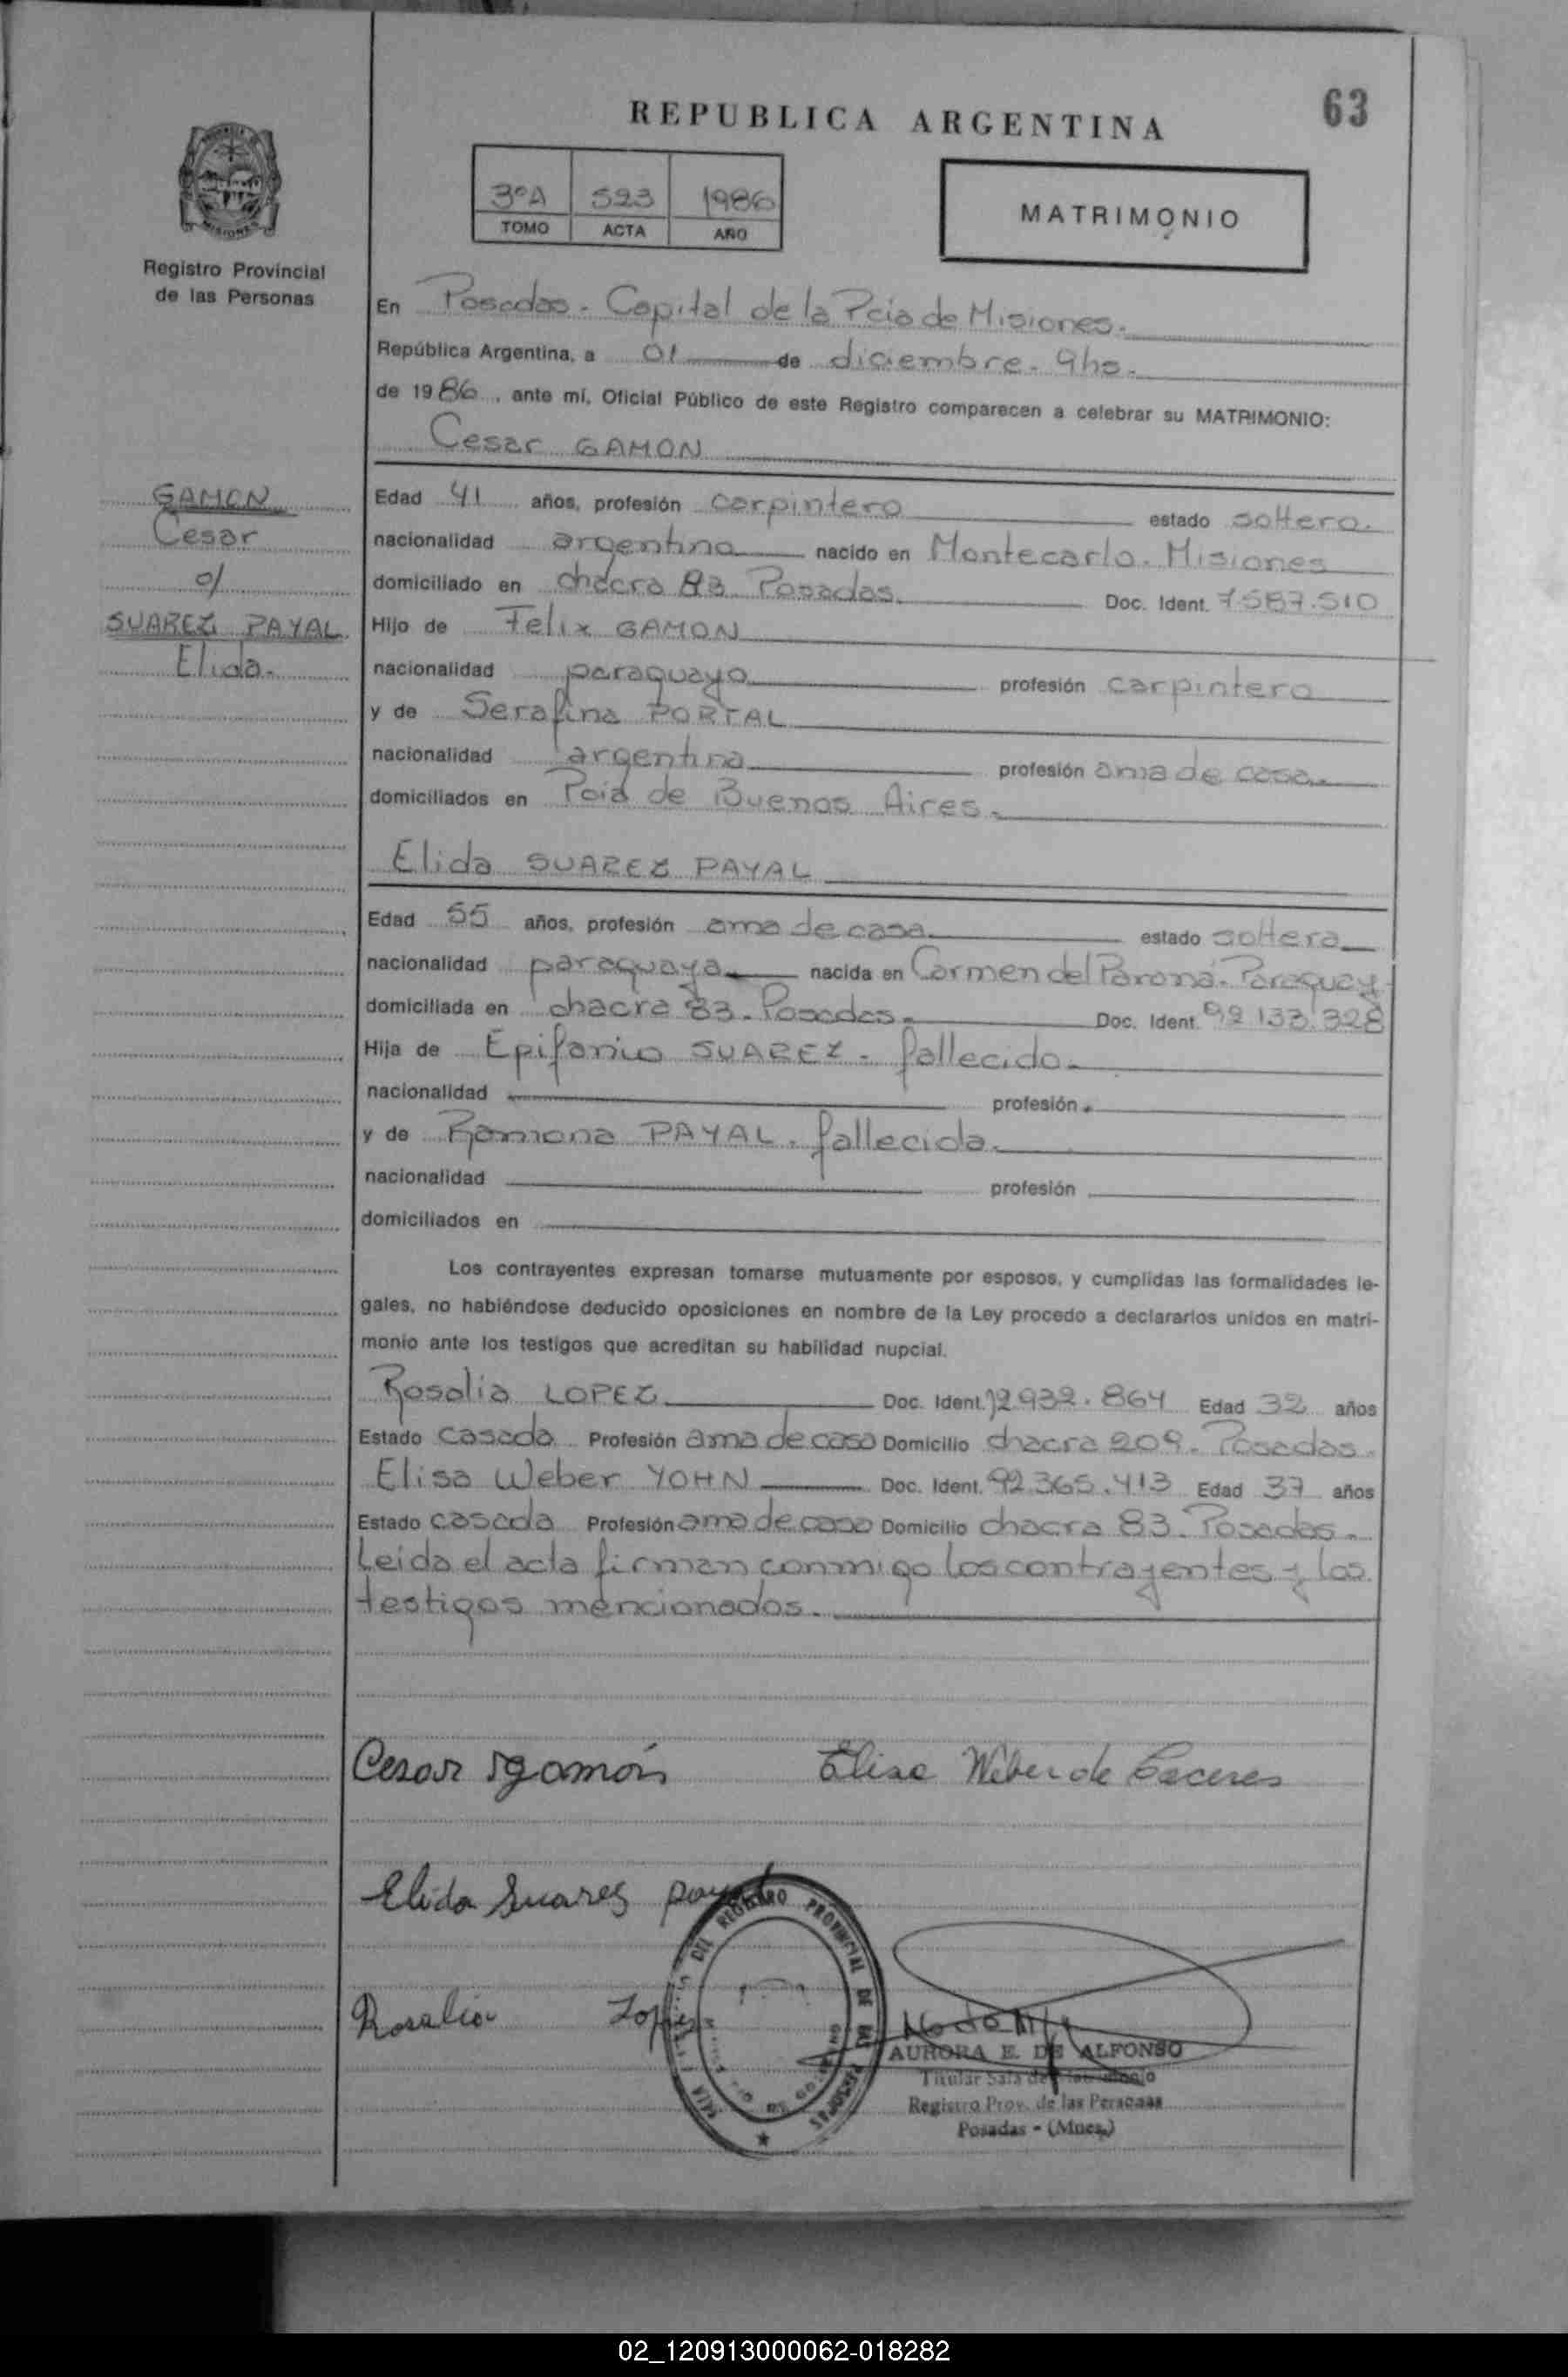 63
REPUBLICA ARGENTINA
3ºA 523 1986
TOMO ACTA AÑO
MATRIMONIO
MISIONES
Registro Provincial
de las Personas
En Posadas - Capital de la Pcia de Misiones.
República Argentina, a 01 de diciembre. 9hs.
de 1986, ante mí, Oficial Público de este Registro comparecen a celebrar su MATRIMONIO:
Cesar GAMON
GAMON
Cesar
c/
SUAREZ PAYAL
Elida.
Edad 41 años, profesión carpintero estado soltero.
nacionalidad argentina nacido en Montecarlo. Misiones
domiciliado en chacra 83. Posadas. Doc. Ident. 7.587.510
Hijo de Felix GAMON
nacionalidad paraguayo profesión carpintero
y de Serafina PORTAL
nacionalidad argentina profesión ama de casa.
domiciliados en Pcia de Buenos Aires.
Elida SUAREZ PAYAL
Edad 55 años, profesión ama de casa. estado soltera
nacionalidad paraguaya nacida en Carmen del Paraná. Paraguay
domiciliada en chacra 83. Posadas. Doc. Ident. 92.133.328
Hija de Epifanio SUAREZ - fallecido.
nacionalidad profesión
y de Ramona PAYAL. fallecida.
nacionalidad profesión
domiciliados en
Los contrayentes expresan tomarse mutuamente por esposos, y cumplidas las formalidades le-
gales, no habiéndose deducido oposiciones en nombre de la Ley procedo a declararlos unidos en matri-
monio ante los testigos que acreditan su habilidad nupcial.
Rosalia LOPEZ Doc. Ident. 12.932.864 Edad 32 años
Estado casada Profesión ama de casa Domicilio chacra 209. Posadas.
Elisa Weber YOHN Doc. Ident. 92.365.413 Edad 37 años
Estado casada Profesión ama de casa Domicilio chacra 83. Posadas.
Leida el acta firman conmigo los contrayentes y los
testigos mencionados.
Cesar Gamón Elisa Weber de Caceres
Elida Suares payal
Rosalia Lopez
DEL REGISTRO PROVINCIAL DE LAS PERSONAS
AURORA E. DE ALFONSO
Titular Sala de Matrimonio
Registro Prov. de las Personas
Posadas - (Mnes.)
02_120913000062-018282